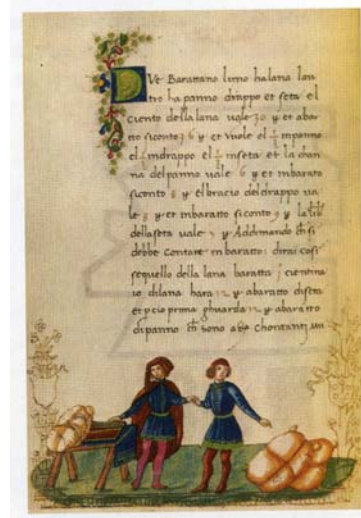 Due Barattano luno ha lana lau
tro ha panno drappo et seta el
ciento della lana uale 30 y et abar
tto siconto 36 y et vuole el 1/3 inpanno
el 1/3 indrappo el 1/3 inseta et la chan
na del panno uale 6 y et inbarato
siconto 8 y elbracio del drappo ua
le y et inbaratto siconto 9 y la
della seta uale y Addimando
debbe Contare inbaratto: dirai cosi
sequello della lana baratta 1 cientina
io dilana hara 12 y abaratto diseta
et pcio prima ghuarda 12 y abaratto
dipanno sono Chontanti